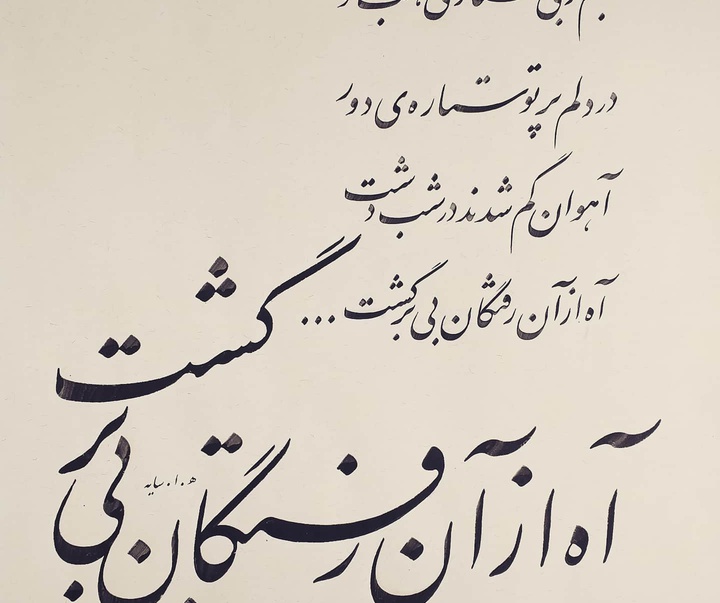 در دلم پرتو ستاره ی دور
آهوان گم شدند در شب دشت
آه از آن رفتگان بی برگشت ...
آه از آن رفتگان بی برگشت
ه . ا . سایه